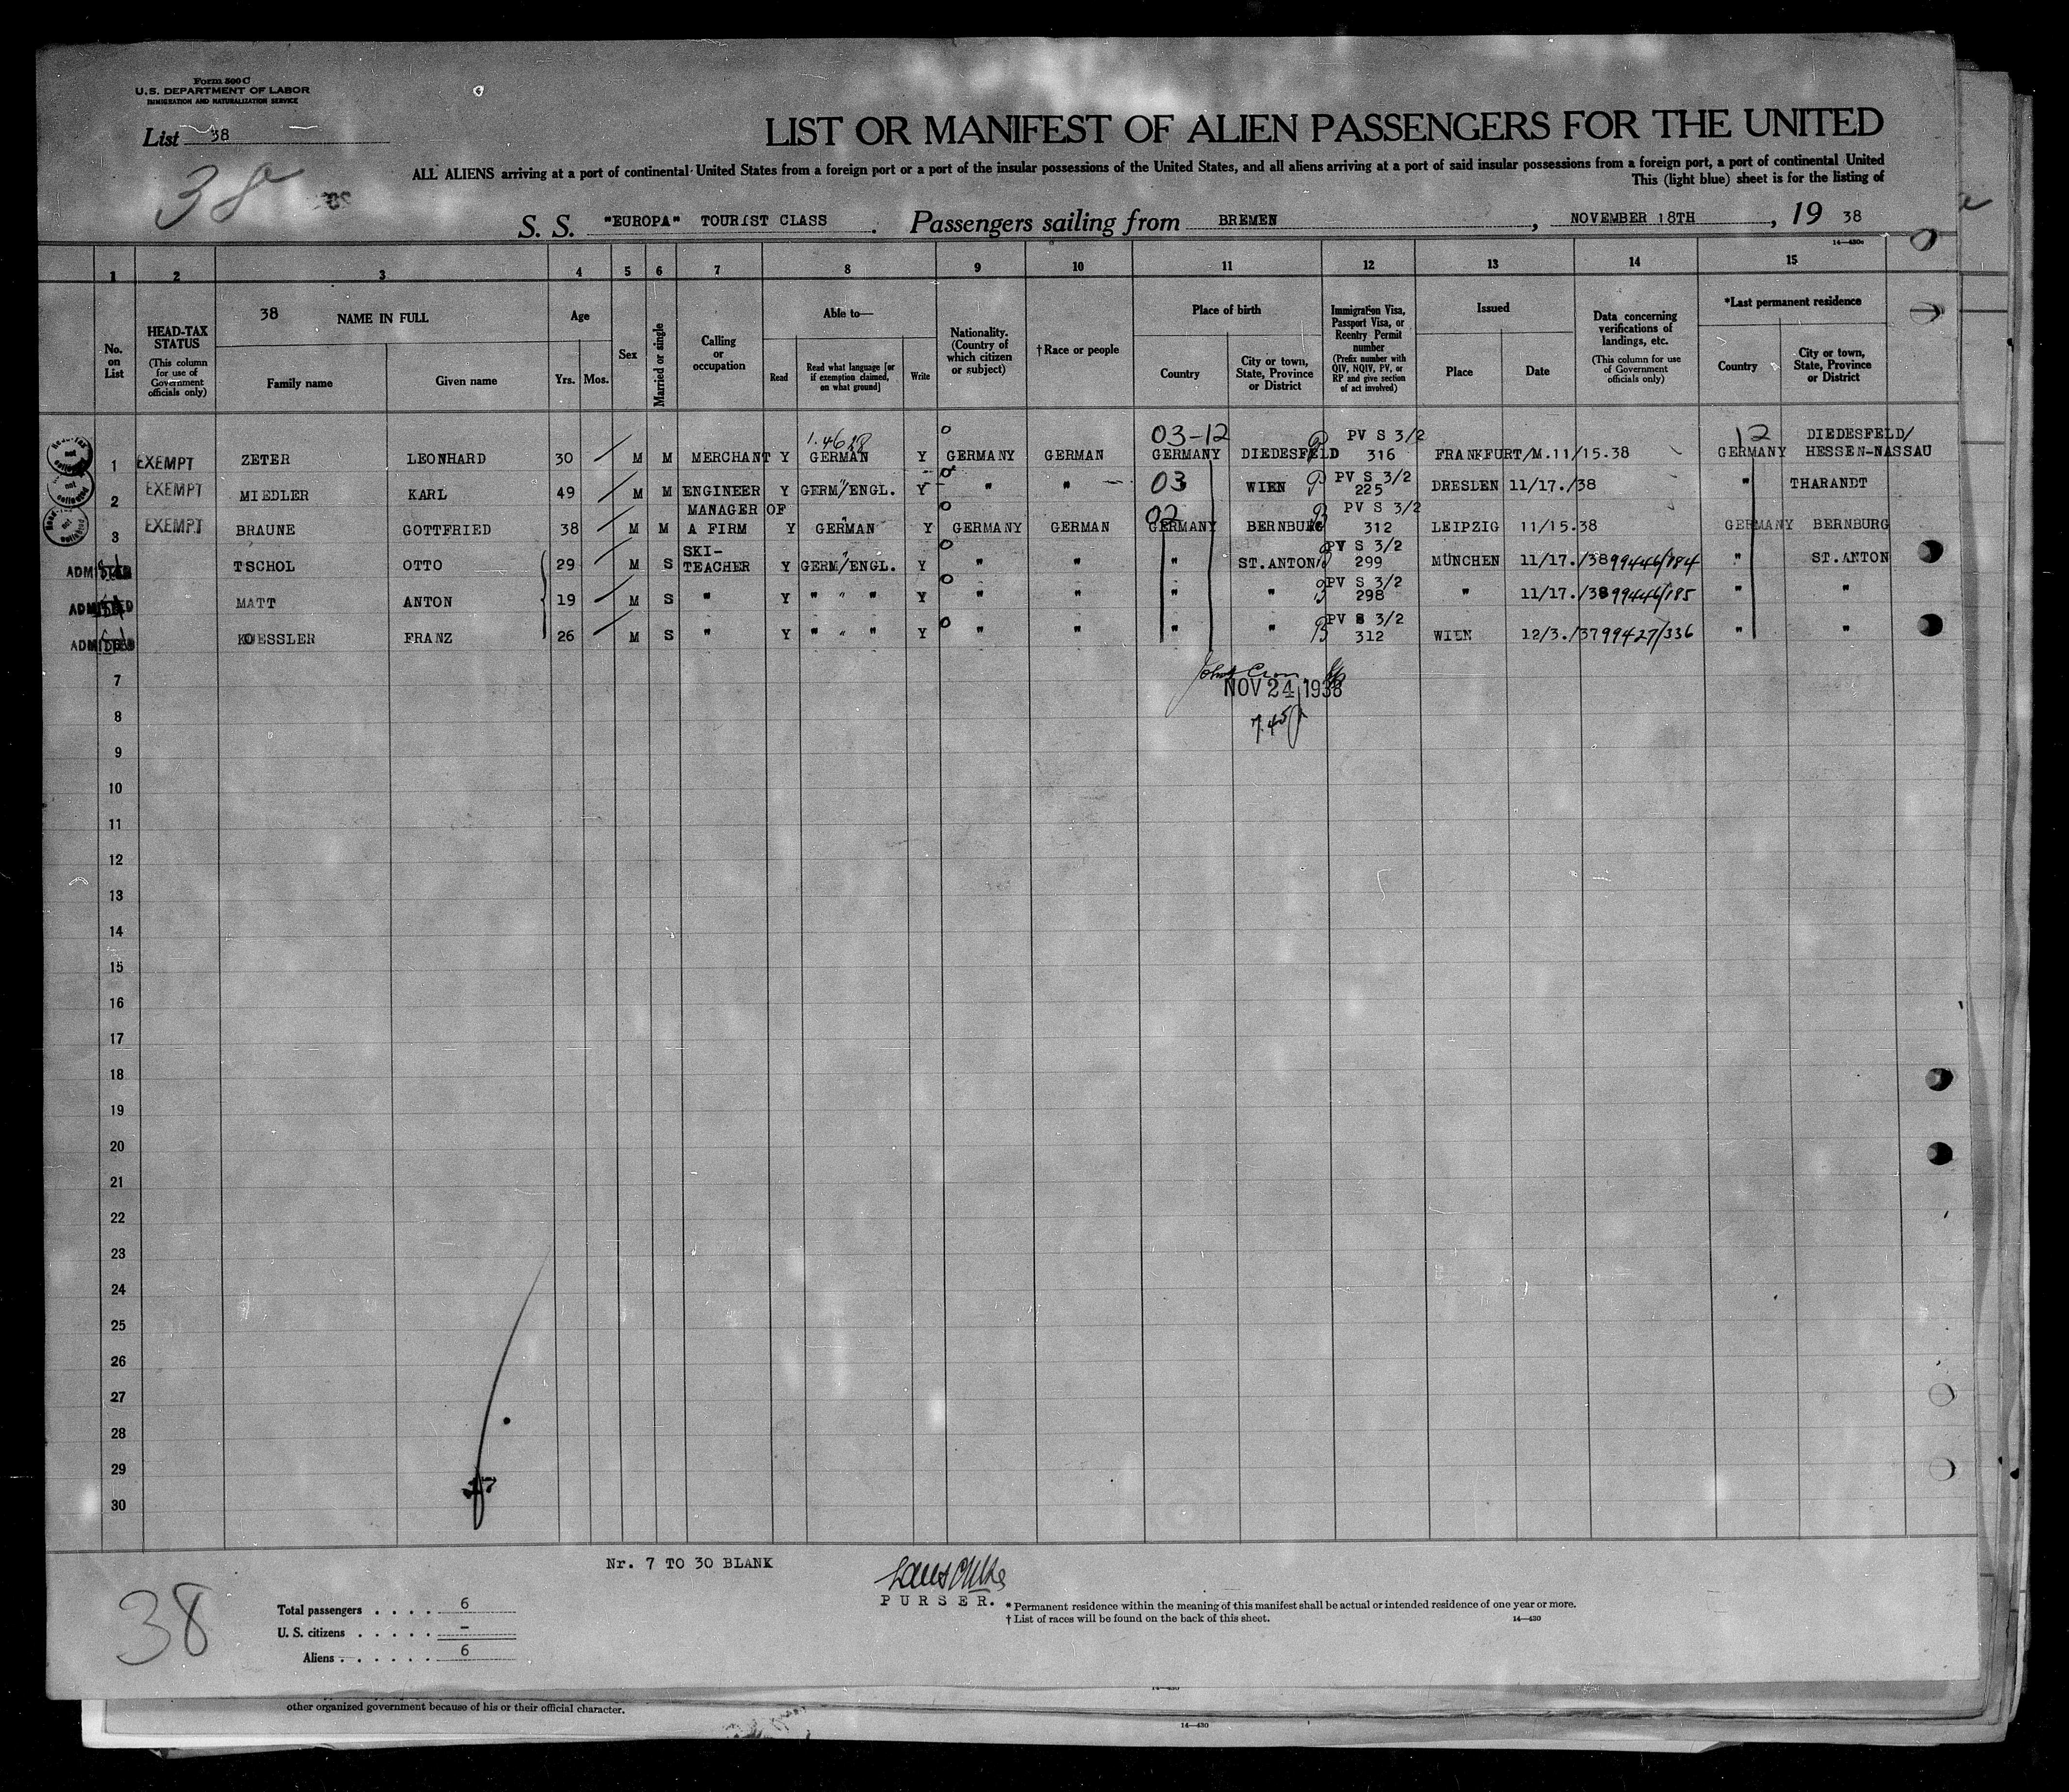 Form 500 C
U. S. DEPARTMENT OF LABOR
IMMIGRATION AND NATURALIZATION SERVICE
List 38
LIST OR MANIFEST OF ALIEN PASSENGERS FOR THE UNITED
ALL ALIENS arriving at a port of continental United States from a foreign port or a port of the insular possessions of the United States, and all aliens arriving at a port of said insular possessions from a foreign port, a port of continental United
This (light blue) sheet is for the listing of
38
S. S. "EUROPA" TOURIST CLASS . Passengers sailing from BREMEN , NOVEMBER 18TH , 19 38
14—430c
1 2 3 4 5 6 7 8 9 10 11 12 13 14 15
No. on List
HEAD-TAX STATUS
(This column for use of Government officials only)
38 NAME IN FULL
Family name Given name
Age
Yrs. Mos.
Sex
Married or single
Calling or occupation
Able to—
Read Read what language [or if exemption claimed, on what ground] Write
Nationality. (Country of which citizen or subject)
† Race or people
Place of birth
Country City or town, State, Province or District
Immigration Visa, Passport Visa, or Reentry Permit number
(Prefix number with QIV, NQIV, PV, or RP and give section of act involved)
Issued
Place Date
Data concerning verifications of landings, etc.
(This column for use of Government officials only)
*Last permanent residence
Country City or town, State, Province or District
03-12 PV S 3/2 12 DIEDESFELD/
1 EXEMPT ZETER LEONHARD 30 M M MERCHANT Y GERMAN Y GERMANY GERMAN GERMANY DIEDESFELD 316 FRANKFURT/M. 11/15.38 GERMANY HESSEN-NASSAU
03 PV S 3/2
2 EXEMPT MIEDLER KARL 49 M M ENGINEER Y GERM/ENGL. Y " " WIEN 225 DRESLEN 11/17./38 " THARANDT
MANAGER OF 02 PV S 3/2
3 EXEMPT BRAUNE GOTTFRIED 38 M M A FIRM Y GERMAN Y GERMANY GERMAN GERMANY BERNBURG 312 LEIPZIG 11/15.38 GERMANY BERNBURG
SKI- PV S 3/2
ADMITTED TSCHOL OTTO 29 M S TEACHER Y GERM/ENGL. Y " " " ST.ANTON 299 MÜNCHEN 11/17./38 99446/184 " ST.ANTON
PV S 3/2
ADMITTED MATT ANTON 19 M S " Y " " " Y " " " " 298 " 11/17./38 99446/185 " "
PV S 3/2
ADMITTED KOESSLER FRANZ 26 M S " Y " " " Y " " " " 312 WIEN 12/3./37 99427/336 " "
7
NOV 24 1938
8
7.45
9
10
11
12
13
14
15
16
17
18
19
20
21
22
23
24
25
26
27
28
29
30
17
Nr. 7 TO 30 BLANK
PURSER.
38
Total passengers . . . . 6
U. S. citizens . . . . . –
Aliens . . . . . . 6
* Permanent residence within the meaning of this manifest shall be actual or intended residence of one year or more.
† List of races will be found on the back of this sheet. 14—430
other organized government because of his or their official character.
14—430